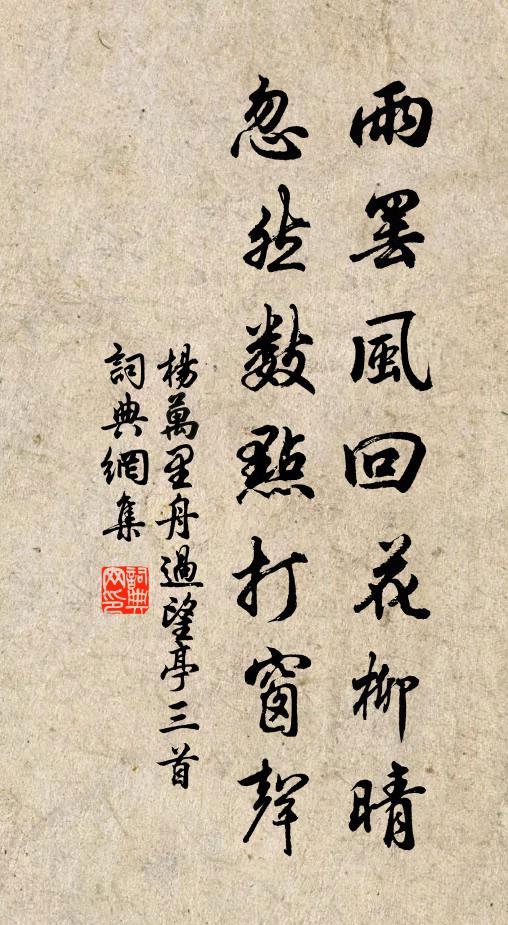 雨罢風回花柳晴
忽然數點打窗聲
楊萬里舟過望亭三首
詞典網集
詞典网印